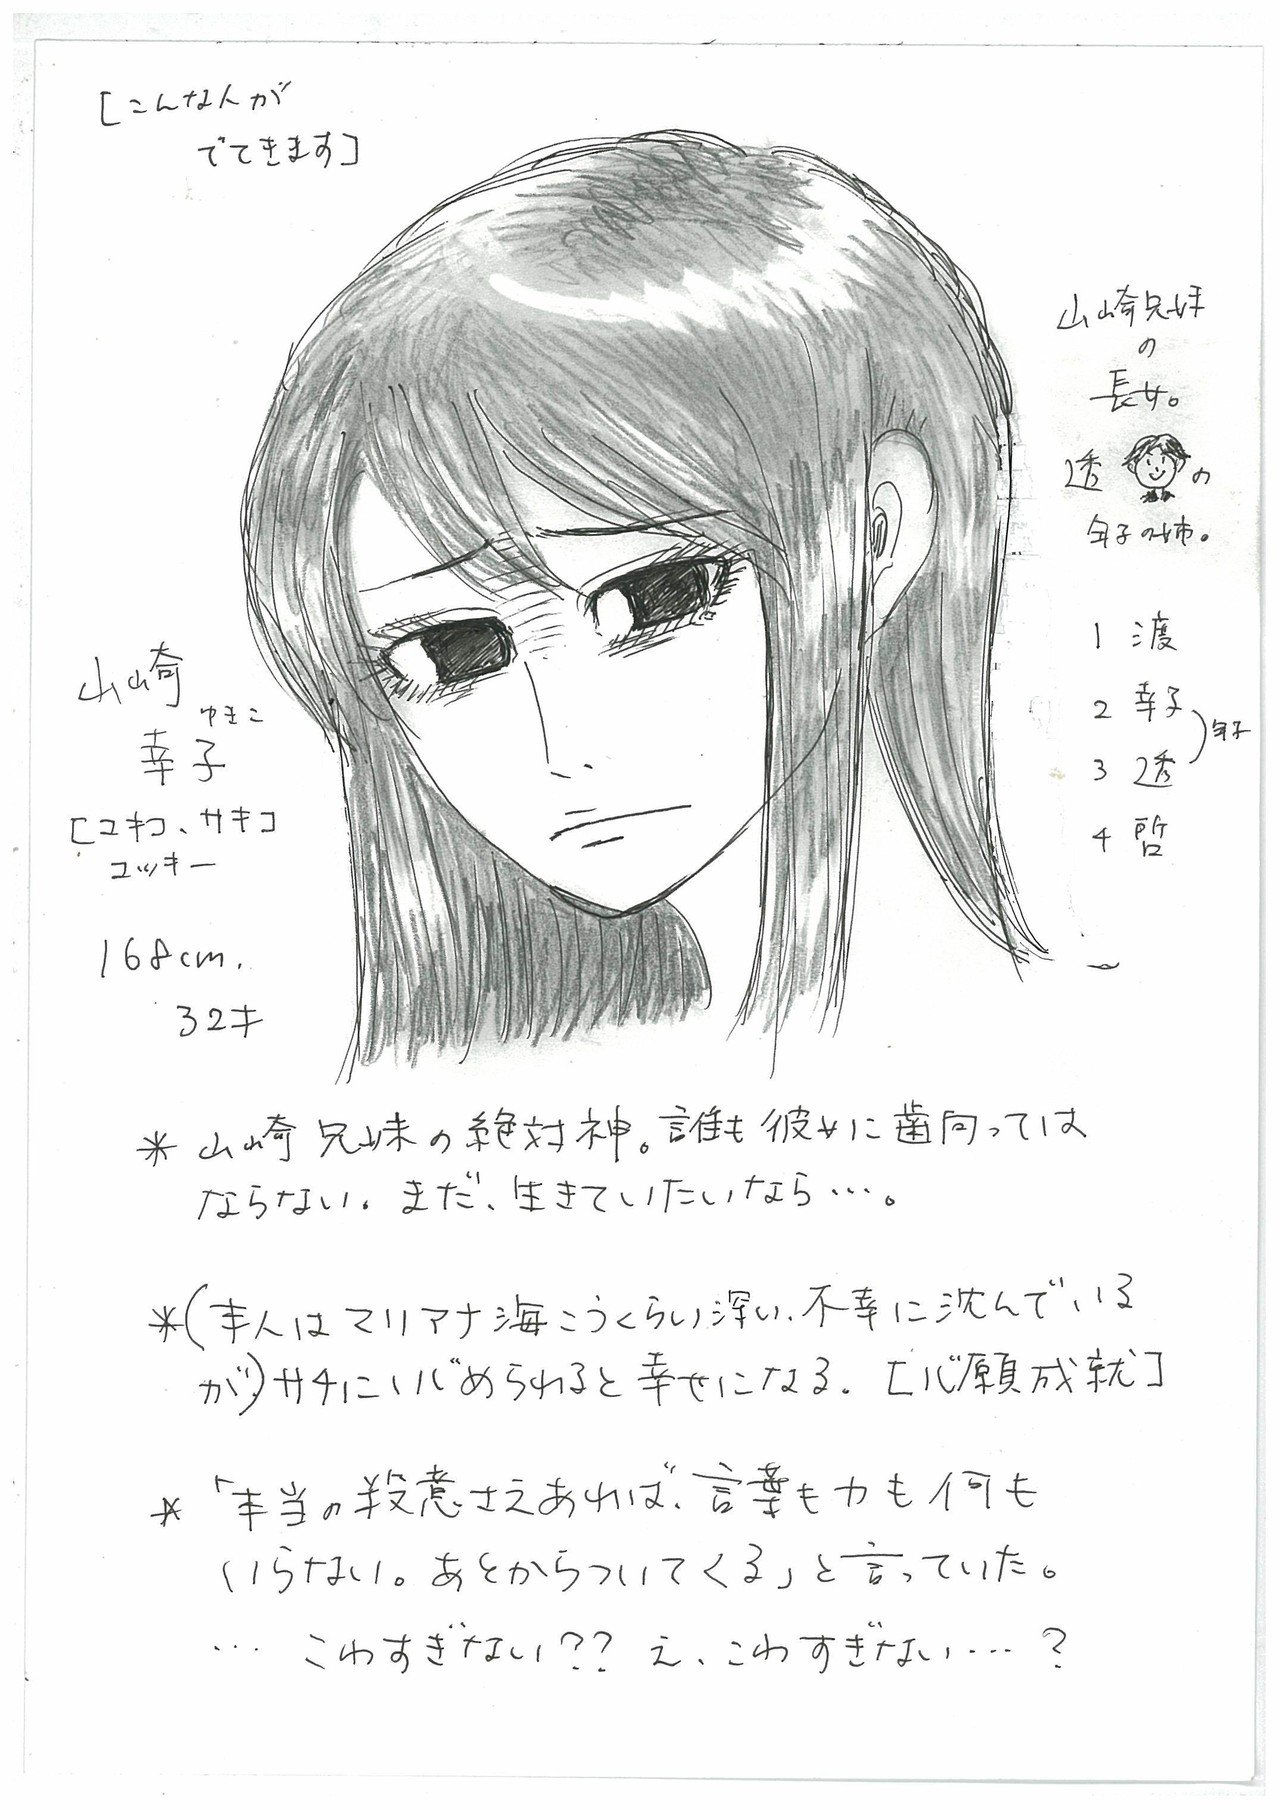 [こんな人が
でてきます]
山崎兄妹
の
長女。
透 の
年子の姉。
1 渡
2 幸子
3 透
4 哲
年子
山崎
幸子
ゆきこ
[ユキコ、サキ]
ユッキー
168cm.
32才
* 山崎兄妹の絶対神。誰も彼女に歯向っては
ならない。まだ、生きていたいなら…。
*(本人はマリアナ海こうくらい深い、不幸に沈んでいる
が)サチにいじめられると幸せになる。[心願成就]
* 「本当の殺意さえあれば、言葉も力も何も
いらない。あとからついてくる」と言っていた。
… こわすぎない?? え、こわすぎない…?